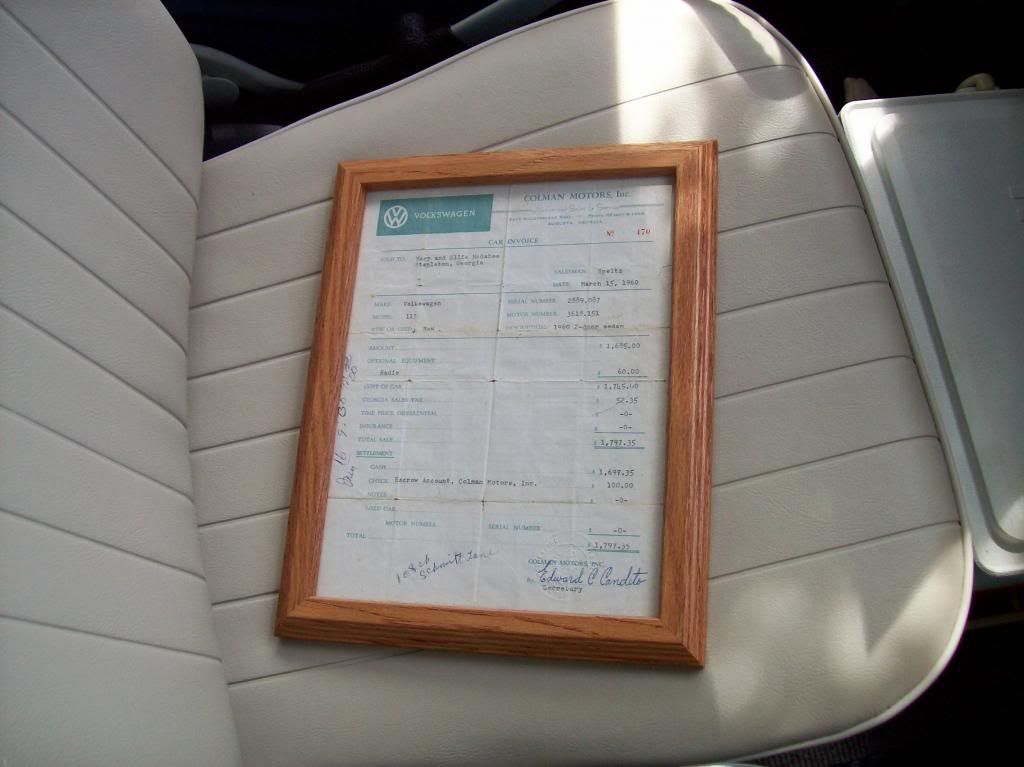 VOLKSWAGEN
COLMAN MOTORS, Inc.
Sales & Service
AUGUSTA, GEORGIA
Nº 470
CAR INVOICE
SOLD TO: Mary and Ellis McGahee
Stapleton, Georgia
SALESMAN: Speltz
DATE: March 15, 1960
MAKE: Volkswagen
SERIAL NUMBER: 2889,087
MODEL: 113
MOTOR NUMBER: 3618,151
NEW OR USED: New
DESCRIPTION: 1960 2-door sedan
AMOUNT $ 1,685.00
OPTIONAL EQUIPMENT
Radio $ 60.00
COST OF CAR $ 1,745.00
GEORGIA SALES TAX $ 52.35
TIME PRICE DIFFERENTIAL $ -0-
INSURANCE $ -0-
TOTAL SALE $ 1,797.35
SETTLEMENT
CASH $ 1,697.35
CHECK Escrow Account, Colman Motors, Inc. $ 100.00
NOTES $ -0-
USED CAR
MOTOR NUMBER SERIAL NUMBER $ -0-
TOTAL $ 1,797.35
Schmitt Lane
COLMAN MOTORS, INC.
By Edward C Candito
Secretary